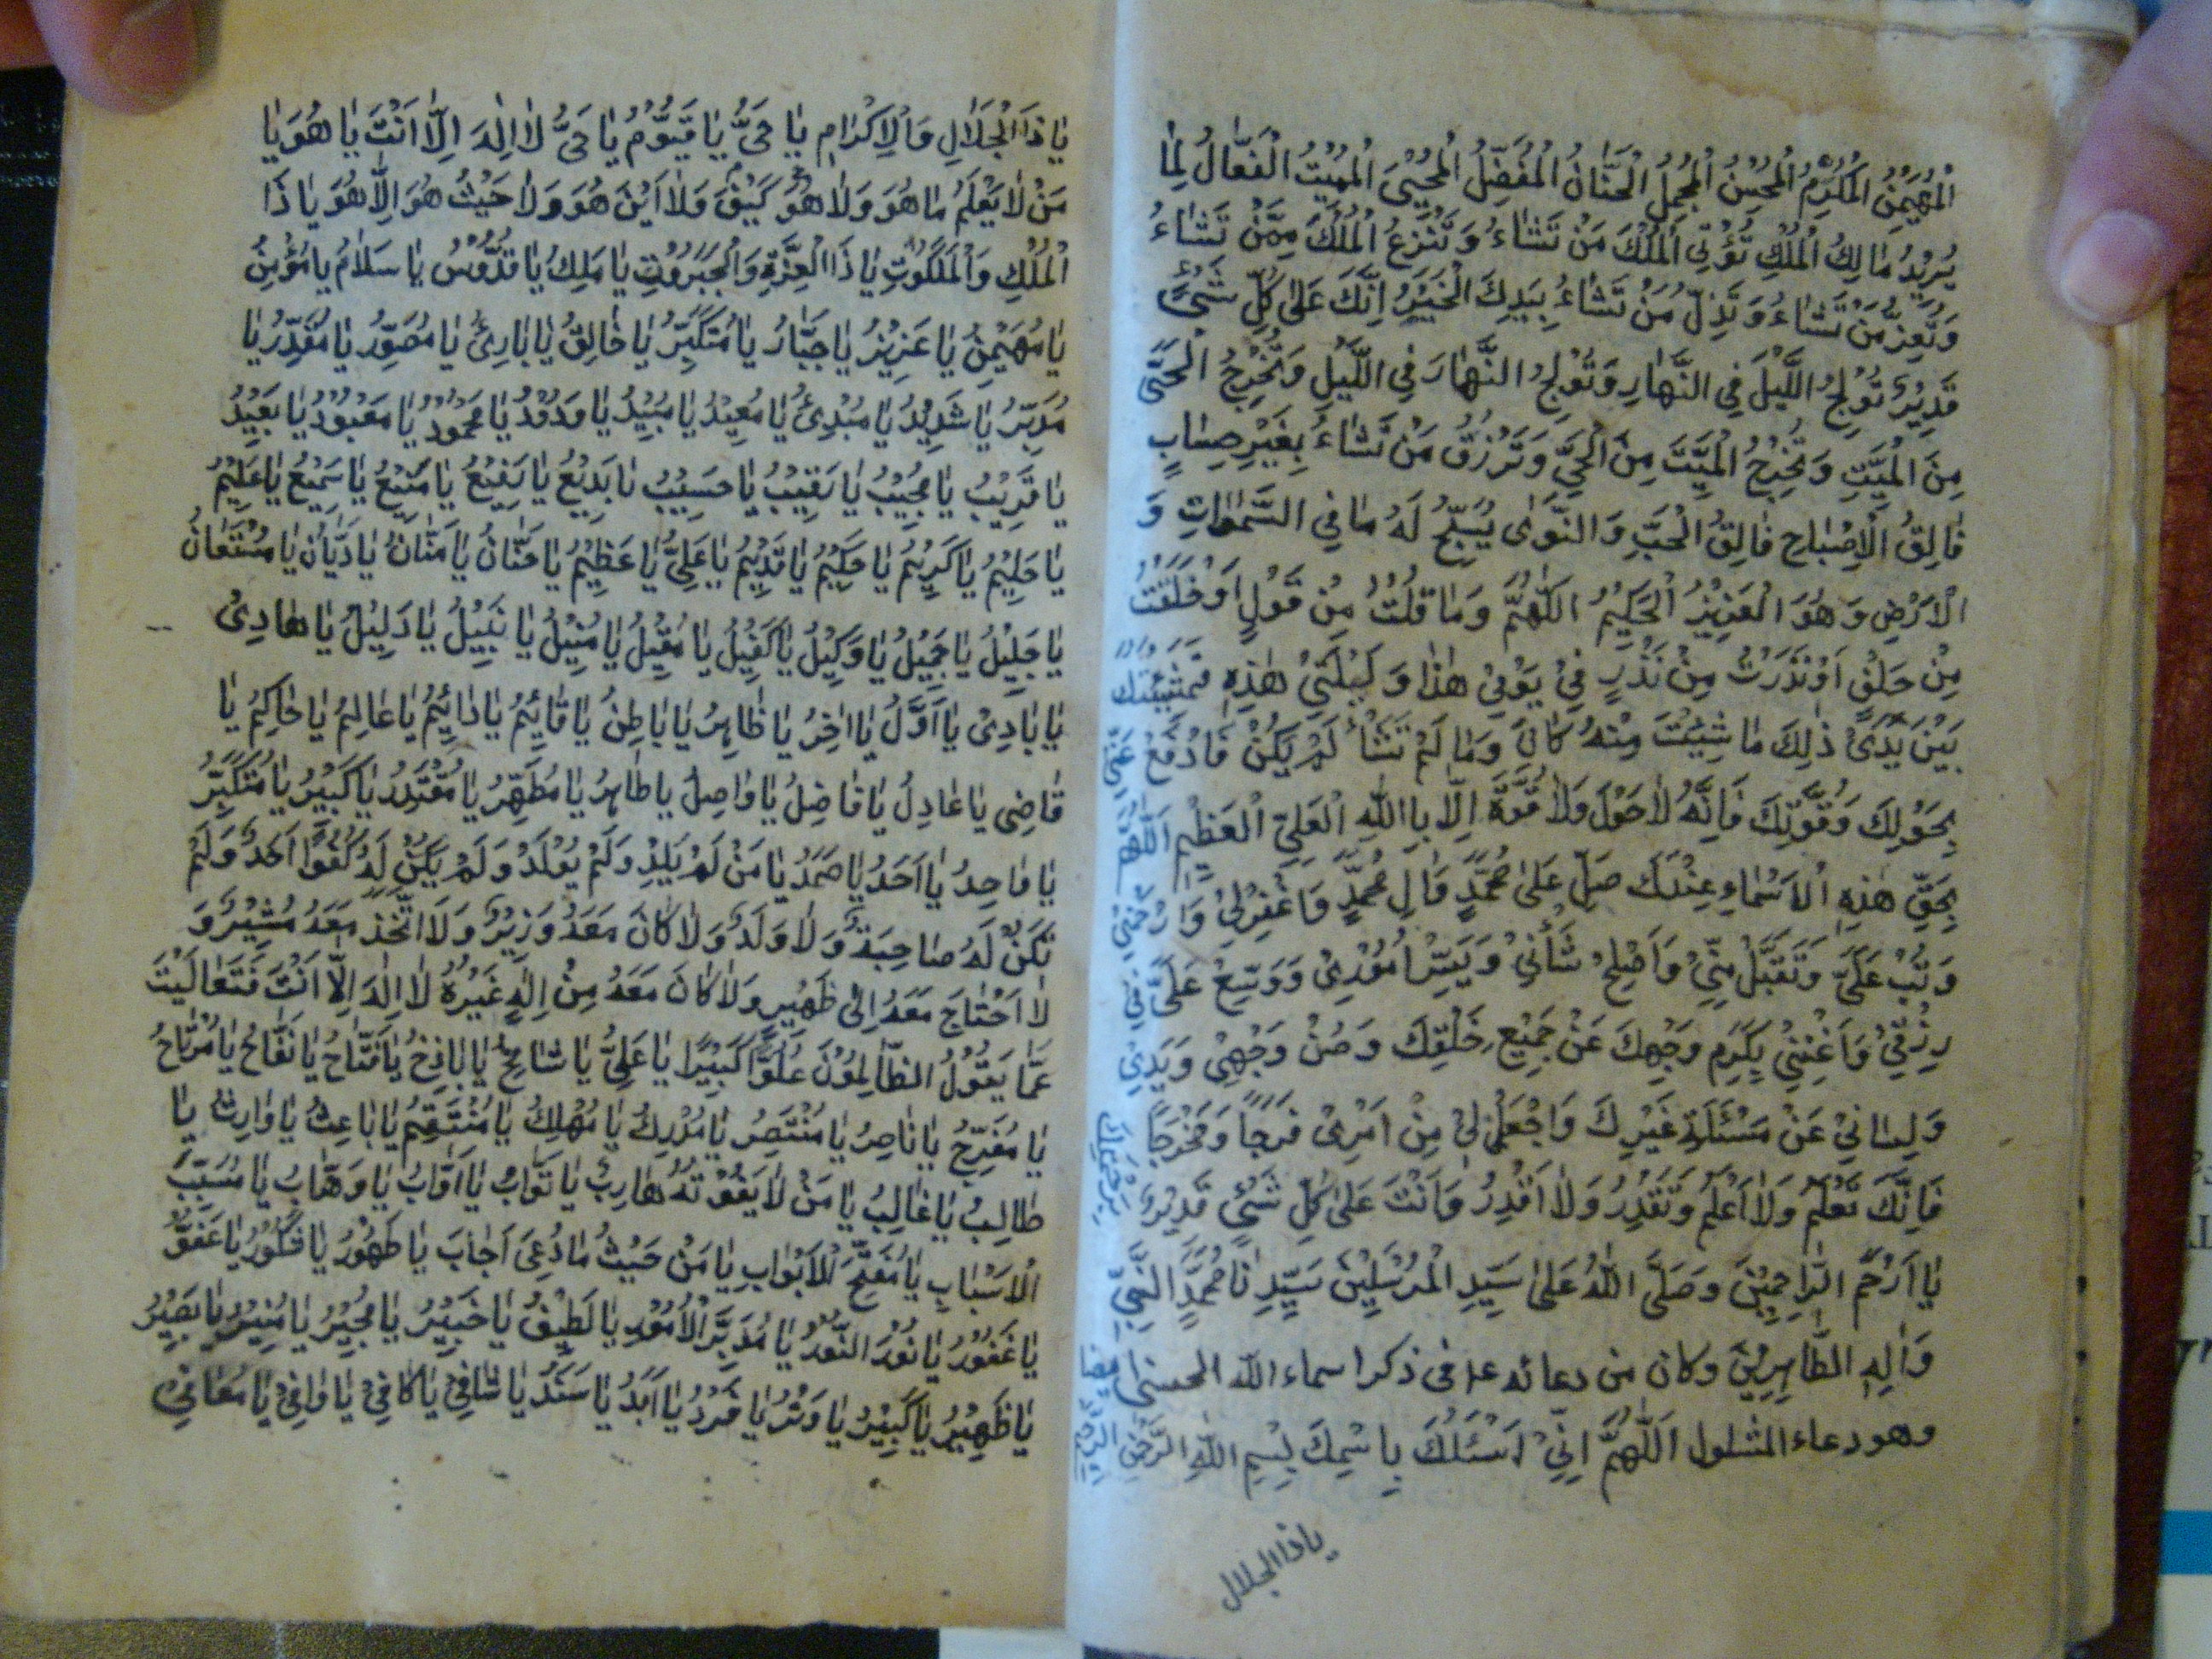 الْمُهَيْمِنُ الْمُكْرِمُ الْمُحْسِنُ الْمُجْمِلُ الْحَنَّانُ الْمُفَضِّلُ الْمُحْيِيْ الْمُمِيْتُ الْفَعَّالُ لِمَا
يُرِيْدُ مَالِكُ الْمُلْكِ تُؤْتِي الْمُلْكَ مَنْ تَشَاءُ وَتَنْزِعُ الْمُلْكَ مِمَّنْ تَشَاءُ
وَتُعِزُّ مَنْ تَشَاءُ وَتُذِلُّ مَنْ تَشَاءُ بِيَدِكَ الْخَيْرُ اِنَّكَ عَلٰى كُلِّ شَيْءٍ
قَدِيْرٌ تُوْلِجُ اللَّيْلَ فِي النَّهَارِ وَتُوْلِجُ النَّهَارَ فِي اللَّيْلِ وَتُخْرِجُ الْحَيَّ
مِنَ الْمَيِّتِ وَتُخْرِجُ الْمَيِّتَ مِنَ الْحَيِّ وَتَرْزُقُ مَنْ تَشَاءُ بِغَيْرِ حِسَابٍ
فَالِقُ الْاِصْبَاحِ فَالِقُ الْحَبِّ وَالنَّوٰى يُسَبِّحُ لَهُ مَا فِي السَّمٰوَاتِ وَ
الْاَرْضِ وَهُوَ الْعَزِيْزُ الْحَكِيْمُ اَللّٰهُمَّ وَمَا قُلْتُ مِنْ قَوْلٍ اَوْ حَلَفْتُ
مِنْ حَلْفٍ اَوْ نَذَرْتُ مِنْ نَذْرٍ فِيْ يَوْمِيْ هٰذَا وَلَيْلَتِيْ هٰذِهِ فَمَشِيَّتُكَ
بَيْنَ يَدَيْ ذٰلِكَ مَا شِئْتَ مِنْهُ كَانَ وَمَا لَمْ تَشَأْ لَمْ يَكُنْ فَادْفَعْ عَنِّيْ
بِحَوْلِكَ وَقُوَّتِكَ فَاِنَّهُ لَا حَوْلَ وَلَا قُوَّةَ اِلَّا بِاللّٰهِ الْعَلِيِّ الْعَظِيْمِ اَللّٰهُمَّ
بِحَقِّ هٰذِهِ الْاَسْمَاءِ عِنْدَكَ صَلِّ عَلٰى مُحَمَّدٍ وَاٰلِ مُحَمَّدٍ وَاغْفِرْلِيْ وَارْحَمْنِيْ
وَتُبْ عَلَيَّ وَتَقَبَّلْ مِنِّيْ وَاَصْلِحْ شَأْنِيْ وَيَسِّرْ اُمُوْرِيْ وَوَسِّعْ عَلَيَّ فِيْ
رِزْقِيْ وَاَغْنِنِيْ بِكَرَمِ وَجْهِكَ عَنْ جَمِيْعِ خَلْقِكَ وَصُنْ وَجْهِيْ وَيَدِيْ
وَلِسَانِيْ عَنْ مَسْئَلَةِ غَيْرِكَ وَاجْعَلْ لِيْ مِنْ اَمْرِيْ فَرَجًا وَمَخْرَجًا
فَاِنَّكَ تَعْلَمُ وَلَا اَعْلَمُ وَتَقْدِرُ وَلَا اَقْدِرُ وَاَنْتَ عَلٰى كُلِّ شَيْءٍ قَدِيْرٌ بِرَحْمَتِكَ
يَا اَرْحَمَ الرَّاحِمِيْنَ وَصَلَّى اللّٰهُ عَلٰى سَيِّدِ الْمُرْسَلِيْنَ سَيِّدِنَا مُحَمَّدٍ النَّبِيِّ
وَاٰلِهِ الطَّاهِرِيْنَ وكان من دعائه ع فى ذكر اسماء الله الحسنى ايضا
وهو دعاء المشلول اَللّٰهُمَّ اِنِّيْ اَسْئَلُكَ بِاسْمِكَ بِسْمِ اللّٰهِ الرَّحْمٰنِ الرَّحِيْمِ
ياذاالجلال
يَا ذَا الْجَلَالِ وَالْاِكْرَامِ يَا حَيُّ يَا قَيُّوْمُ يَا حَيُّ لَا اِلٰهَ اِلَّا اَنْتَ يَا هُوَ يَا
مَنْ لَا يَعْلَمُ مَا هُوَ وَلَا هُوَ كَيْفَ وَلَا اَيْنَ هُوَ وَلَا حَيْثُ هُوَ اِلَّا هُوَ يَا ذَا
الْمُلْكِ وَالْمَلَكُوْتِ يَا ذَا الْعِزَّةِ وَالْجَبَرُوْتِ يَا مَلِكُ يَا قُدُّوْسُ يَا سَلَامُ يَا مُؤْمِنُ
يَا مُهَيْمِنُ يَا عَزِيْزُ يَا جَبَّارُ يَا مُتَكَبِّرُ يَا خَالِقُ يَا بَارِئُ يَا مُصَوِّرُ يَا مُقَدِّرُ يَا
مُدَبِّرُ يَا شَدِيْدُ يَا مُبْدِئُ يَا مُعِيْدُ يَا مُبِيْدُ يَا وَدُوْدُ يَا مَحْمُوْدُ يَا مَعْبُوْدُ يَا بَعِيْدُ
يَا قَرِيْبُ يَا مُجِيْبُ يَا رَقِيْبُ يَا حَسِيْبُ يَا بَدِيْعُ يَا رَفِيْعُ يَا مَنِيْعُ يَا سَمِيْعُ يَا عَلِيْمُ
يَا حَلِيْمُ يَا كَرِيْمُ يَا حَكِيْمُ يَا قَدِيْمُ يَا عَلِيُّ يَا عَظِيْمُ يَا حَنَّانُ يَا مَنَّانُ يَا دَيَّانُ يَا مُسْتَعَانُ
يَا جَلِيْلُ يَا جَمِيْلُ يَا وَكِيْلُ يَا كَفِيْلُ يَا مُقِيْلُ يَا مُنِيْلُ يَا نَبِيْلُ يَا دَلِيْلُ يَا هَادِيْ
يَا بَادِيْ يَا اَوَّلُ يَا اٰخِرُ يَا ظَاهِرُ يَا بَاطِنُ يَا قَائِمُ يَا دَائِمُ يَا عَالِمُ يَا حَاكِمُ يَا
قَاضِي يَا عَادِلُ يَا فَاضِلُ يَا وَاصِلُ يَا طَاهِرُ يَا مُطَهِّرُ يَا مُقْتَدِرُ يَا كَبِيْرُ يَا مُتَكَبِّرُ
يَا وَاحِدُ يَا اَحَدُ يَا صَمَدُ يَا مَنْ لَمْ يَلِدْ وَلَمْ يُوْلَدْ وَلَمْ يَكُنْ لَهُ كُفُوًا اَحَدٌ وَلَمْ
تَكُنْ لَهُ صَاحِبَةٌ وَلَا وَلَدٌ وَلَا كَانَ مَعَهُ وَزِيْرٌ وَلَا اتَّخَذَ مَعَهُ مُشِيْرًا وَ
لَا احْتَاجَ مَعَهُ اِلٰى ظَهِيْرٍ وَلَا كَانَ مَعَهُ مِنْ اِلٰهٍ غَيْرُهُ لَا اِلٰهَ اِلَّا اَنْتَ فَتَعَالَيْتَ
عَمَّا يَقُوْلُ الظَّالِمُوْنَ عُلُوًّا كَبِيْرًا يَا عَلِيُّ يَا شَامِخُ يَا بَاذِخُ يَا فَتَّاحُ يَا نَفَّاحُ يَا مُرْتَاحُ
يَا مُفَرِّجُ يَا نَاصِرُ يَا مُنْتَصِرُ يَا مُدْرِكُ يَا مُهْلِكُ يَا مُنْتَقِمُ يَا بَاعِثُ يَا وَارِثُ يَا
طَالِبُ يَا غَالِبُ يَا مَنْ لَا يَفُوْتُهُ هَارِبٌ يَا تَوَّابُ يَا اَوَّابُ يَا وَهَّابُ يَا مُسَبِّبَ
الْاَسْبَابِ يَا مُفَتِّحَ الْاَبْوَابِ يَا مَنْ حَيْثُ مَا دُعِيَ اَجَابَ يَا طَهُوْرُ يَا شَكُوْرُ يَا عَفُوُّ
يَا غَفُوْرُ يَا نُوْرَ النُّوْرِ يَا مُدَبِّرَ الْاُمُوْرِ يَا لَطِيْفُ يَا خَبِيْرُ يَا مُجِيْرُ يَا مُنِيْرُ يَا بَصِيْرُ
يَا ظَهِيْرُ يَا كَبِيْرُ يَا وَتْرُ يَا فَرْدُ يَا اَبَدُ يَا سَنَدُ يَا شَافِيْ يَا كَافِيْ يَا وَافِيْ يَا مُعَافِيْ